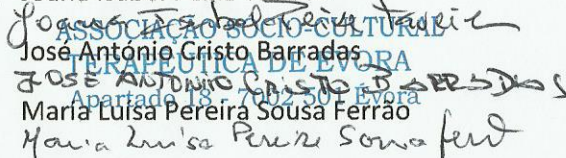 Joana Isabel Pereira Faria
ASSOCIAÇÃO SÓCIO-CULTURAL
José António Cristo Barradas
TERAPÊUTICA DE ÉVORA
JOSÉ ANTONIO CRISTO BARRADAS
Apartado 18 - 7002 501 Évora
Maria Luísa Pereira Sousa Ferrão
Maria Luisa Pereira Sousa